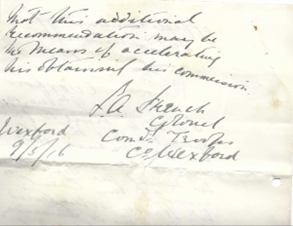 that this additional
recommendation may be
the means of accelerating
his obtaining his commission
Colonel
Wexford
9/5/16
Comdg Troops
Co Wexford